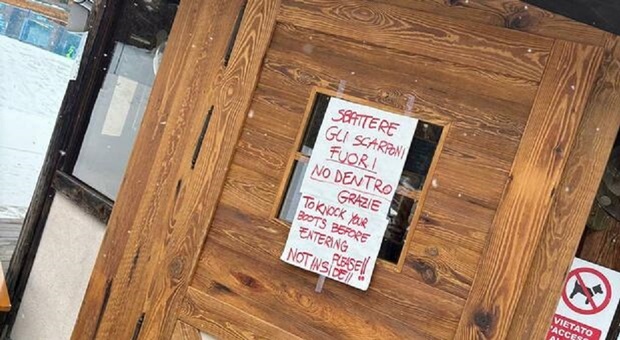 SBATTERE
GLI SCARPONI
FUORI
NO DENTRO
GRAZIE
TO KNOCK YOUR
BOOTS BEFORE
ENTERING
PLEASE!!
NOT INSIDE!!
VIETATO